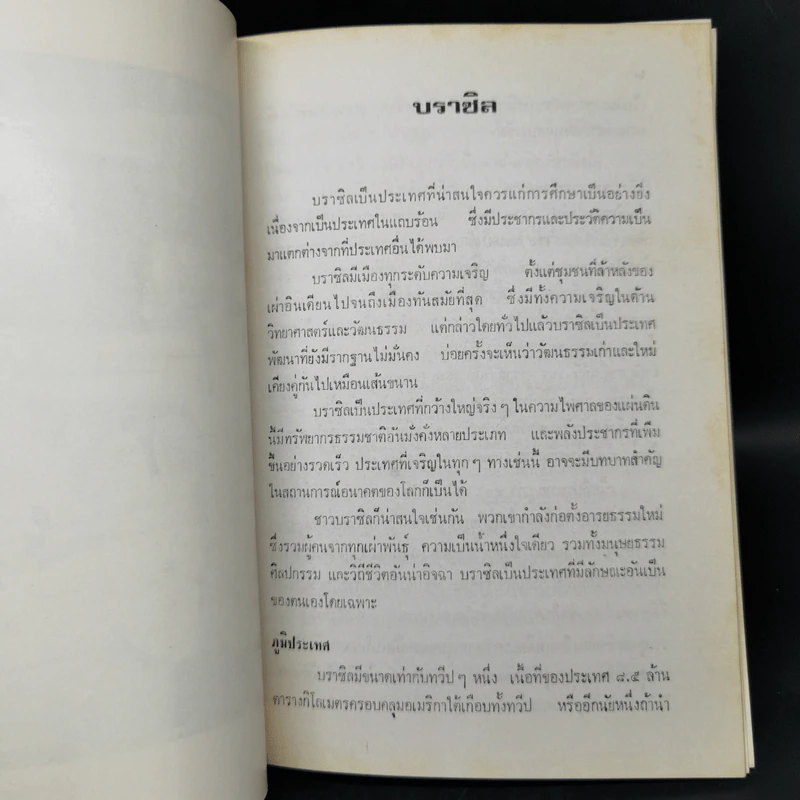 บราซิล
บราซิลเป็นประเทศที่น่าสนใจควรแก่การศึกษาเป็นอย่างยิ่ง
เนื่องจากเป็นประเทศในแถบร้อน ซึ่งมีประชากรและประวัติความเป็น
มาแตกต่างจากที่ประเทศอื่นได้พบมา
บราซิลมีเมืองทุกระดับความเจริญ ตั้งแต่ชุมชนที่ล้าหลังของ
เผ่าอินเดียนไปจนถึงเมืองทันสมัยที่สุด ซึ่งมีทั้งความเจริญในด้าน
วิทยาศาสตร์และวัฒนธรรม แต่กล่าวโดยทั่วไปแล้วบราซิลเป็นประเทศ
พัฒนาที่ยังมีรากฐานไม่มั่นคง บ่อยครั้งจะเห็นว่าวัฒนธรรมเก่าและใหม่
เคียงคู่กันไปเหมือนเส้นขนาน
บราซิลเป็นประเทศที่กว้างใหญ่จริง ๆ ในความไพศาลของแผ่นดิน
นี้มีทรัพยากรธรรมชาติอันมั่งคั่งหลายประเภท และพลังประชากรที่เพิ่ม
ขึ้นอย่างรวดเร็ว ประเทศที่เจริญในทุก ๆ ทางเช่นนี้ อาจจะมีบทบาทสำคัญ
ในสถานการณ์อนาคตของโลกก็เป็นได้
ชาวบราซิลก็น่าสนใจเช่นกัน พวกเขากำลังก่อตั้งอารยธรรมใหม่
ซึ่งรวมผู้คนจากทุกเผ่าพันธุ์ ความเป็นน้ำหนึ่งใจเดียว รวมทั้งมนุษยธรรม
ศิลปกรรม และวิถีชีวิตอันน่าอิจฉา บราซิลเป็นประเทศที่มีลักษณะอันเป็น
ของตนเองโดยเฉพาะ
ภูมิประเทศ
บราซิลมีขนาดเท่ากับทวีป ๆ หนึ่ง เนื้อที่ของประเทศ ๘.๕ ล้าน
ตารางกิโลเมตรครอบคลุมอเมริกาใต้เกือบทั้งทวีป หรืออีกนัยหนึ่งถ้านำ